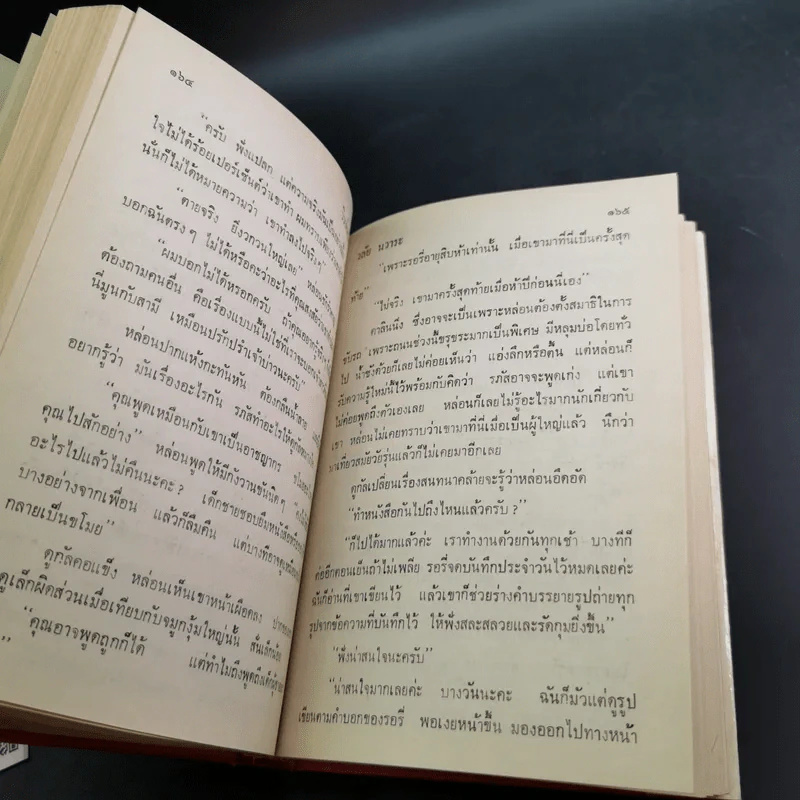 ๑๖๔
“ครับ ฟังแปลก แต่ความจริงมัน
ใจไม่ได้ร้อยเปอร์เซ็นต์ว่าเขาทำ ผมทราบ
นั่นก็ไม่ได้หมายความว่า เขาทำลงไปจริงๆ”
“ตายจริง ยิ่งวกวนใหญ่เลย” หล่อน
บอกฉันตรงๆ ไม่ได้หรือคะว่าอะไรที่คุณสงสัย
“ผมบอกไม่ได้หรอกครับ ถ้าคุณอยากรู้
ต้องถามคนอื่น คือเรื่องแบบนี้ไม่ใช่ที่เราจะ
นี่มูนกับสามี เหมือนปรักปรำเจ้าบ่าวนะครับ”
หล่อนปากแห้งทันทันหัน ต้องกลืนน้ำลาย
อยากรู้ว่า มันเรื่องอะไรกัน รภัสทำอะไรให้ดูกัล
“คุณพูดเหมือนกับเขาเป็นอาชญากร
คุณไปสักอย่าง” หล่อนพูดให้มีกังวานขันนิดๆ
อะไรไปแล้วไม่คืนนะคะ? เด็กชายชอบยืมหนังสือ
บางอย่างจากเพื่อน แล้วก็ลืมคืน แต่บางที
กลายเป็นขโมย”
ดูกัลคอแข็ง หล่อนเห็นเขาหน้าเผือดลง
ดูเล็กผิดส่วนเมื่อเทียบกับจมูกงุ้มใหญ่นั้น สั่นเล็กน้อย
“คุณอาจพูดถูกก็ได้ แต่ทำไมถึงพูดถึง
๑๖๕
วลัย นวาระ
“เพราะรอรี่อายุสิบห้าเท่านั้น เมื่อเขามาที่นี่เป็นครั้งสุด
ท้าย”
“ไปจริง เขามาครั้งสุดท้ายเมื่อห้าปีก่อนนี่เอง”
คาลินนิ่ง ซึ่งอาจจะเป็นเพราะหล่อนต้องตั้งสมาธิในการ
ขับรถ เพราะถนนช่วงนี้ขรุขระมากเป็นพิเศษ มีหลุมบ่อโดยทั่ว
ไป น้ำขังด้วยก็เลยไม่ค่อยเห็นว่า แอ่งลึกหรือตื้น แต่หล่อนก็
รับความรู้ใหม่นี้ไว้พร้อมกับคิดว่า รภัสอาจจะพูดเก่ง แต่เขา
ไม่ค่อยพูดถึงตัวเองเลย หล่อนก็เลยไม่รู้อะไรมากนักเกี่ยวกับ
เขา หล่อนไม่เคยทราบว่าเขามาที่นี่เมื่อเป็นผู้ใหญ่แล้ว นึกว่า
มาเที่ยวสมัยวัยรุ่นแล้วก็ไม่เคยมาอีกเลย
ดูกัลเปลี่ยนเรื่องสนทนาคล้ายจะรู้ว่าหล่อนอึดอัด
“ทำหนังสือกันไปถึงไหนแล้วครับ?”
“ก็ไปได้มากแล้วค่ะ เราทำงานด้วยกันทุกเช้า บางทีก็
ต่ออีกตอนเย็นถ้าไม่เพลีย รอรี่จดบันทึกประจำวันไว้หมดเลยค่ะ
ฉันก็อ่านที่เขาเขียนไว้ แล้วเขาก็ช่วยร่างคำบรรยายรูปถ่ายทุก
รูปจากข้อความที่บันทึกไว้ ให้ฟังสละสลวยและรัดกุมยิ่งขึ้น”
“ฟังน่าสนใจนะครับ”
“น่าสนใจมากเลยค่ะ บางวันนะคะ ฉันก็มัวแต่ดูรูป
เขียนตามคำบอกของรอรี่ พอเงยหน้าขึ้น มองออกไปทางหน้า